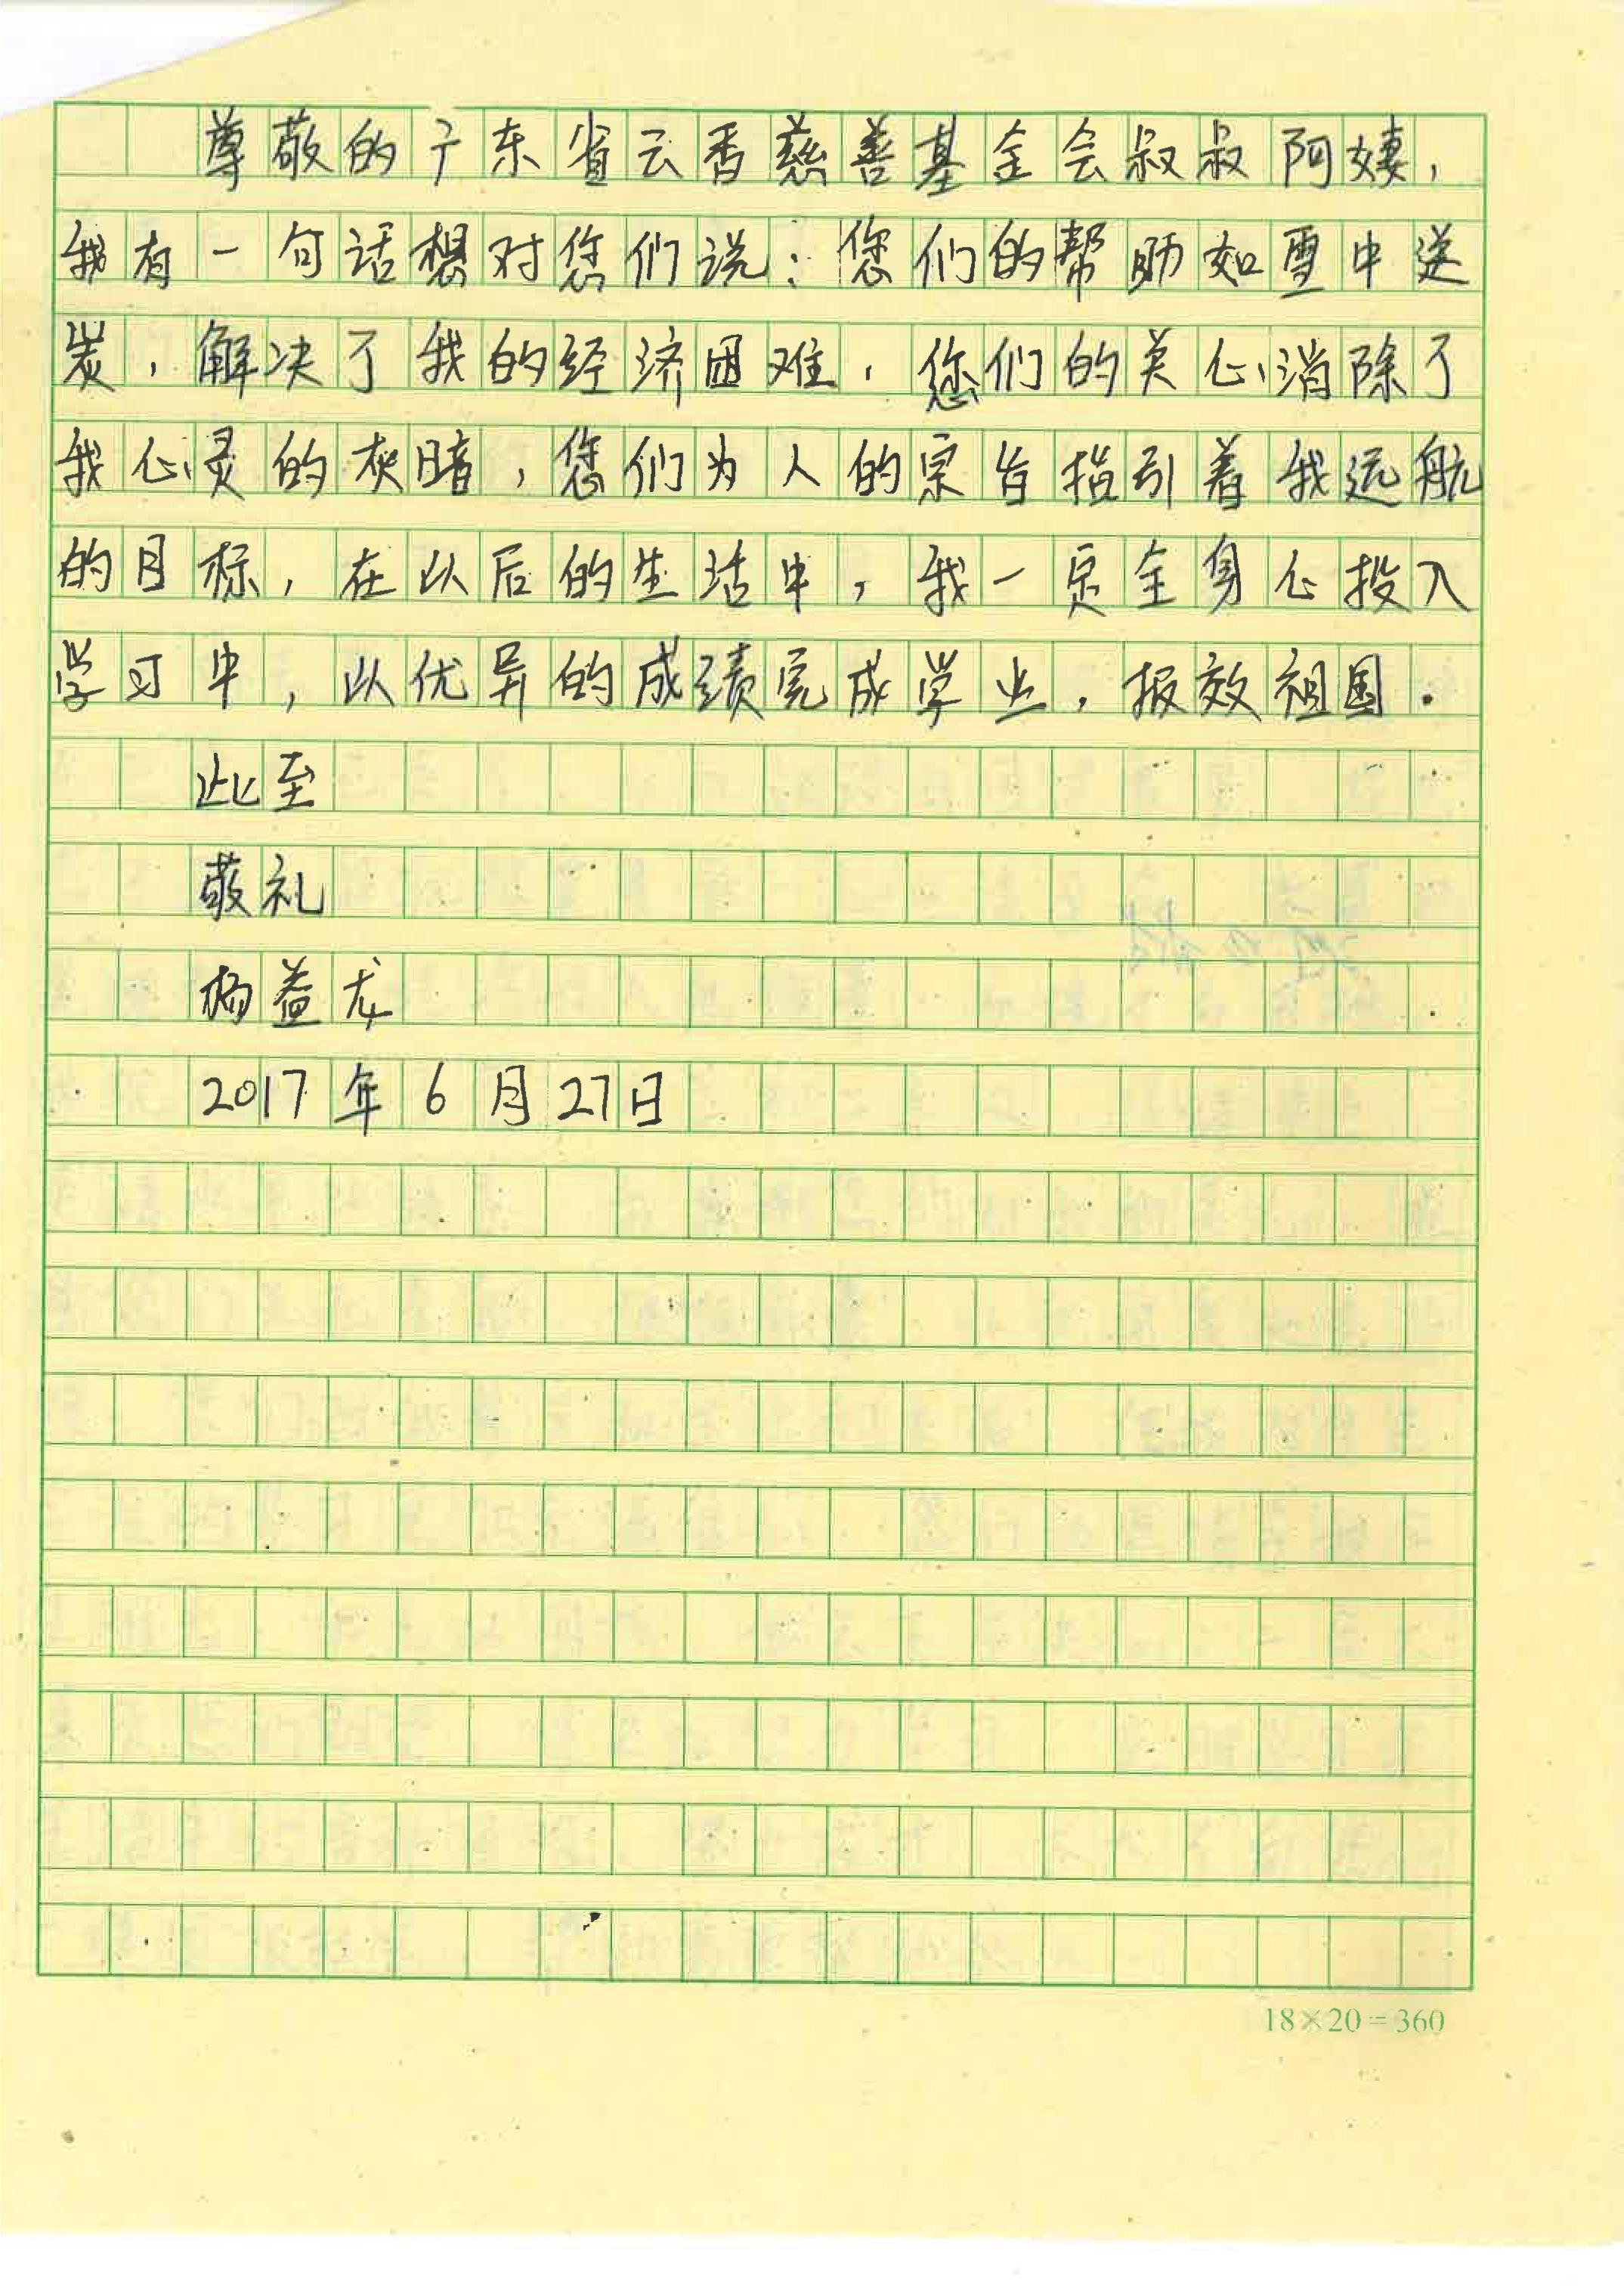 尊敬的广东省云香慈善基金会叔叔阿姨，
我有一句话想对您们说：您们的帮助如雪中送
炭，解决了我的经济困难，您们的关心消除了
我心灵的灰暗，您们为人的宗旨指引着我远航
的目标，在以后的生活中，我一定全身心投入
学习中，以优异的成绩完成学业，报效祖国。
此至
敬礼
杨益龙
2017年6月27日
18×20=360